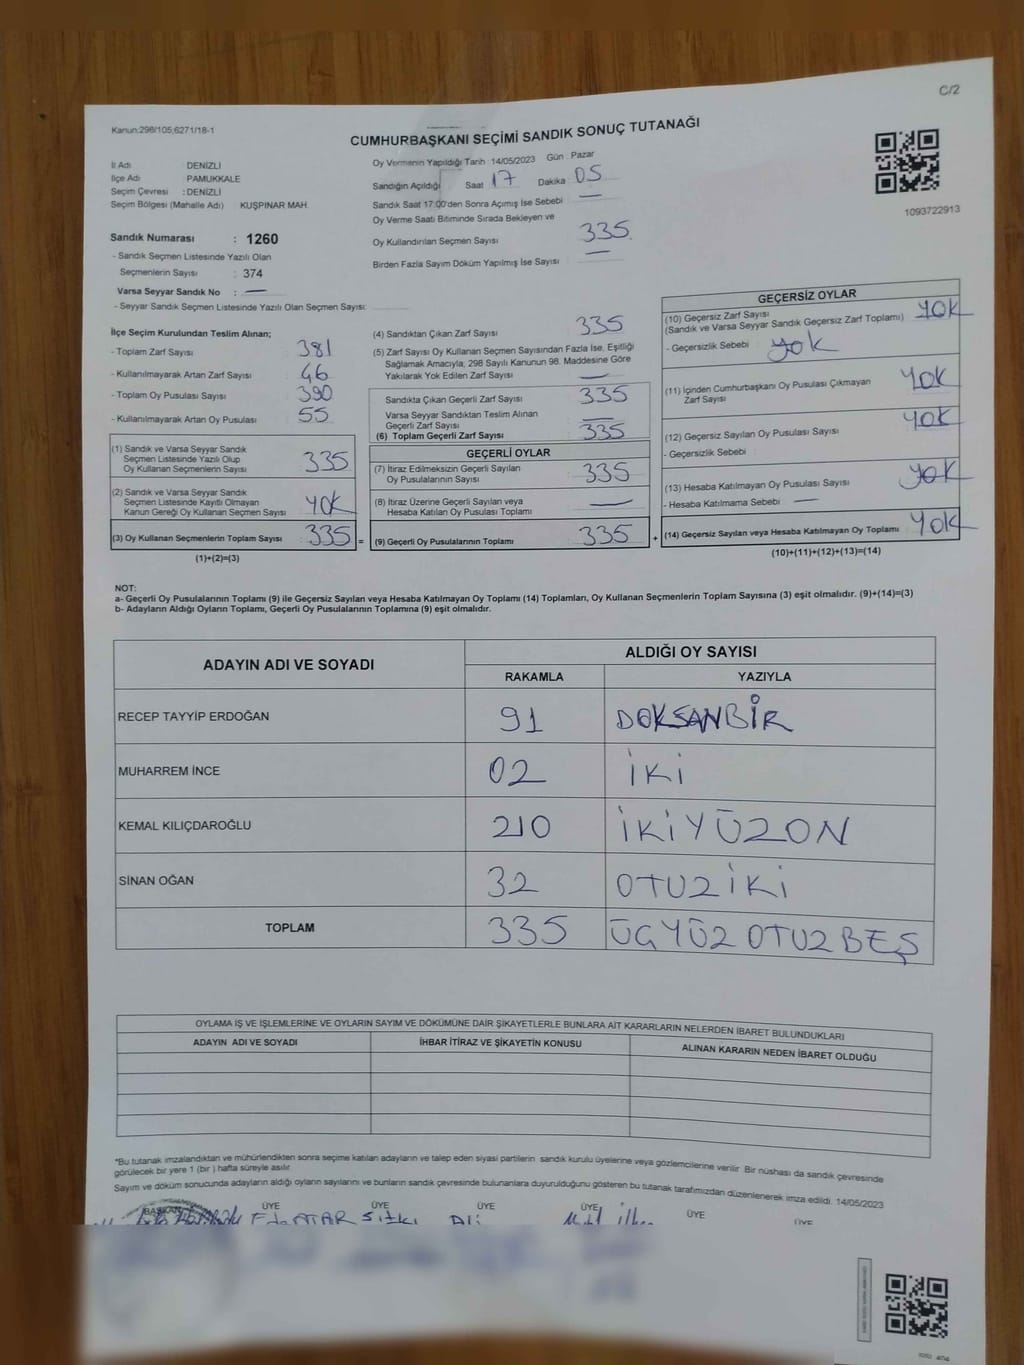 C/2
Kanun:298/105,6271/18-1
CUMHURBAŞKANI SEÇİMİ SANDIK SONUÇ TUTANAĞI
İl Adı DENİZLİ
İlçe Adı PAMUKKALE
Seçim Çevresi : DENİZLİ
Seçim Bölgesi (Mahalle Adı) KUŞPINAR MAH.
Oy Vermenin Yapıldığı Tarih : 14/05/2023 Gün : Pazar
Sandığın Açıldığı Saat 17 Dakika 05
Sandık Saat 17:00'den Sonra Açımış İse Sebebi —
Oy Verme Saati Bitiminde Sırada Bekleyen ve
Oy Kullandırılan Seçmen Sayısı 335
Birden Fazla Sayım Döküm Yapılmış İse Sayısı —
1093722913
Sandık Numarası : 1260
- Sandık Seçmen Listesinde Yazılı Olan
Seçmenlerin Sayısı : 374
Varsa Seyyar Sandık No : —
- Seyyar Sandık Seçmen Listesinde Yazılı Olan Seçmen Sayısı:
İlçe Seçim Kurulundan Teslim Alınan;
- Toplam Zarf Sayısı : 381
- Kullanılmayarak Artan Zarf Sayısı : 46
- Toplam Oy Pusulası Sayısı : 390
- Kullanılmayarak Artan Oy Pusulası : 55
(1) Sandık ve Varsa Seyyar Sandık
Seçmen Listesinde Yazılı Olup
Oy Kullanan Seçmenlerin Sayısı 335
(2) Sandık ve Varsa Seyyar Sandık
Seçmen Listesinde Kayıtlı Olmayan
Kanun Gereği Oy Kullanan Seçmen Sayısı YOK
(3) Oy Kullanan Seçmenlerin Toplam Sayısı 335 =
(1)+(2)=(3)
(4) Sandıktan Çıkan Zarf Sayısı 335
(5) Zarf Sayısı Oy Kullanan Seçmen Sayısından Fazla İse, Eşitliği
Sağlamak Amacıyla, 298 Sayılı Kanunun 98. Maddesine Göre
Yakılarak Yok Edilen Zarf Sayısı —
Sandıkta Çıkan Geçerli Zarf Sayısı 335
Varsa Seyyar Sandıktan Teslim Alınan
Geçerli Zarf Sayısı —
(6) Toplam Geçerli Zarf Sayısı 335
GEÇERLİ OYLAR
(7) İtiraz Edilmeksizin Geçerli Sayılan
Oy Pusulalarının Sayısı 335
(8) İtiraz Üzerine Geçerli Sayılan veya
Hesaba Katılan Oy Pusulası Toplamı —
(9) Geçerli Oy Pusulalarının Toplamı 335 +
GEÇERSİZ OYLAR
(10) Geçersiz Zarf Sayısı YOK
(Sandık ve Varsa Seyyar Sandık Geçersiz Zarf Toplamı)
- Geçersizlik Sebebi yok
(11) İçinden Cumhurbaşkanı Oy Pusulası Çıkmayan
Zarf Sayısı YOK
(12) Geçersiz Sayılan Oy Pusulası Sayısı YOK
- Geçersizlik Sebebi :
(13) Hesaba Katılmayan Oy Pusulası Sayısı yok
- Hesaba Katılmama Sebebi —
(14) Geçersiz Sayılan veya Hesaba Katılmayan Oy Toplamı YOK
(10)+(11)+(12)+(13)=(14)
NOT:
a- Geçerli Oy Pusulalarının Toplamı (9) ile Geçersiz Sayılan veya Hesaba Katılmayan Oy Toplamı (14) Toplamları, Oy Kullanan Seçmenlerin Toplam Sayısına (3) eşit olmalıdır. (9)+(14)=(3)
b- Adayların Aldığı Oyların Toplamı, Geçerli Oy Pusulalarının Toplamına (9) eşit olmalıdır.
ADAYIN ADI VE SOYADI ALDIĞI OY SAYISI
RAKAMLA YAZIYLA
RECEP TAYYİP ERDOĞAN 91 DOKSANBİR
MUHARREM İNCE 02 İKİ
KEMAL KILIÇDAROĞLU 210 İKİYÜZON
SİNAN OĞAN 32 OTUZİKİ
TOPLAM 335 ÜÇYÜZOTUZBEŞ
OYLAMA İŞ VE İŞLEMLERİNE VE OYLARIN SAYIM VE DÖKÜMÜNE DAİR ŞİKAYETLERLE BUNLARA AİT KARARLARIN NELERDEN İBARET BULUNDUKLARI
ADAYIN ADI VE SOYADI İHBAR İTİRAZ VE ŞİKAYETİN KONUSU ALINAN KARARIN NEDEN İBARET OLDUĞU
*Bu tutanak imzalandıktan ve mühürlendikten sonra seçime katılan adayların ve talep eden siyasi partilerin sandık kurulu üyelerine veya gözlemcilerine verilir. Bir nüshası da sandık çevresinde
görülecek bir yere 1 (bir ) hafta süreyle asılır.
Sayım ve döküm sonucunda adayların aldığı oyların sayılarını ve bunların sandık çevresinde bulunanlara duyurulduğunu gösteren bu tutanak tarafımızdan düzenlenerek imza edildi. 14/05/2023
BAŞKAN ÜYE ÜYE ÜYE ÜYE ÜYE ÜYE
Sıtkı Ali